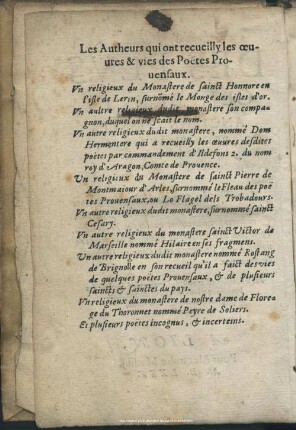 Les Autheurs qui ont recueilly les œu-
ures & vies des Poëtes Pro-
uensaux.
Vn religieux du Monastere de sainct Honnore en
l'isle de Lerin, surnōmé le Monge des isles d'or.
Vn aultre religieux dudit monastere son compa-
gnon, duquel on ne sçait le nom.
Vn autre religieux dudit monastere, nommé Dom
Hermentere qui a recueilly les œuures desdites
poëtes par commandement d'Ildefons 2. du nom
roy d'Aragon, Comte de Prouence.
Vn religieux du Monastere de sainct Pierre de
Montmaiour d'Arles, surnommé le Fleau des poë
tes Prouensaux, ou Lo Flagel dels Trobadours.
Vn autre religieux dudit monastere, surnommé sainct
Cesary.
Vn autre religieux du monastere sainct Victor de
Marseille nommé Hilaire en ses fragmens.
Vn autre religieux dudit monastere nommé Rostang
de Brignolle en son recueil qu'il a faict des vies
de quelques poëtes Prouensaux, & de plusieurs
saincts & sainctes du pays.
Vn religieux du monastere de nostre dame de Flore
ge du Thoronnet nommé Peyre de Soliers.
Et plusieurs poëtes incognus, & incertains.